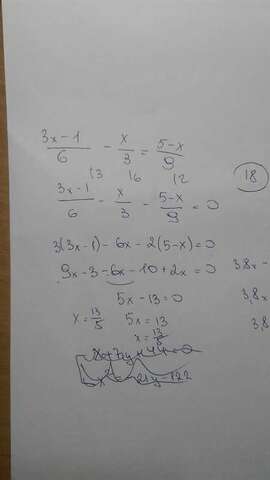 (3x-1)/6 - x/3 = (5-x)/9
13 16 12
(3x-1)/6 - x/3 - (5-x)/9 = 0
18
3(3x-1) - 6x - 2(5-x) = 0
9x - 3 - 6x - 10 + 2x = 0
3,8x -
5x - 13 = 0
3,8x
x = 13/5
5x = 13
3,8
x = 13/5